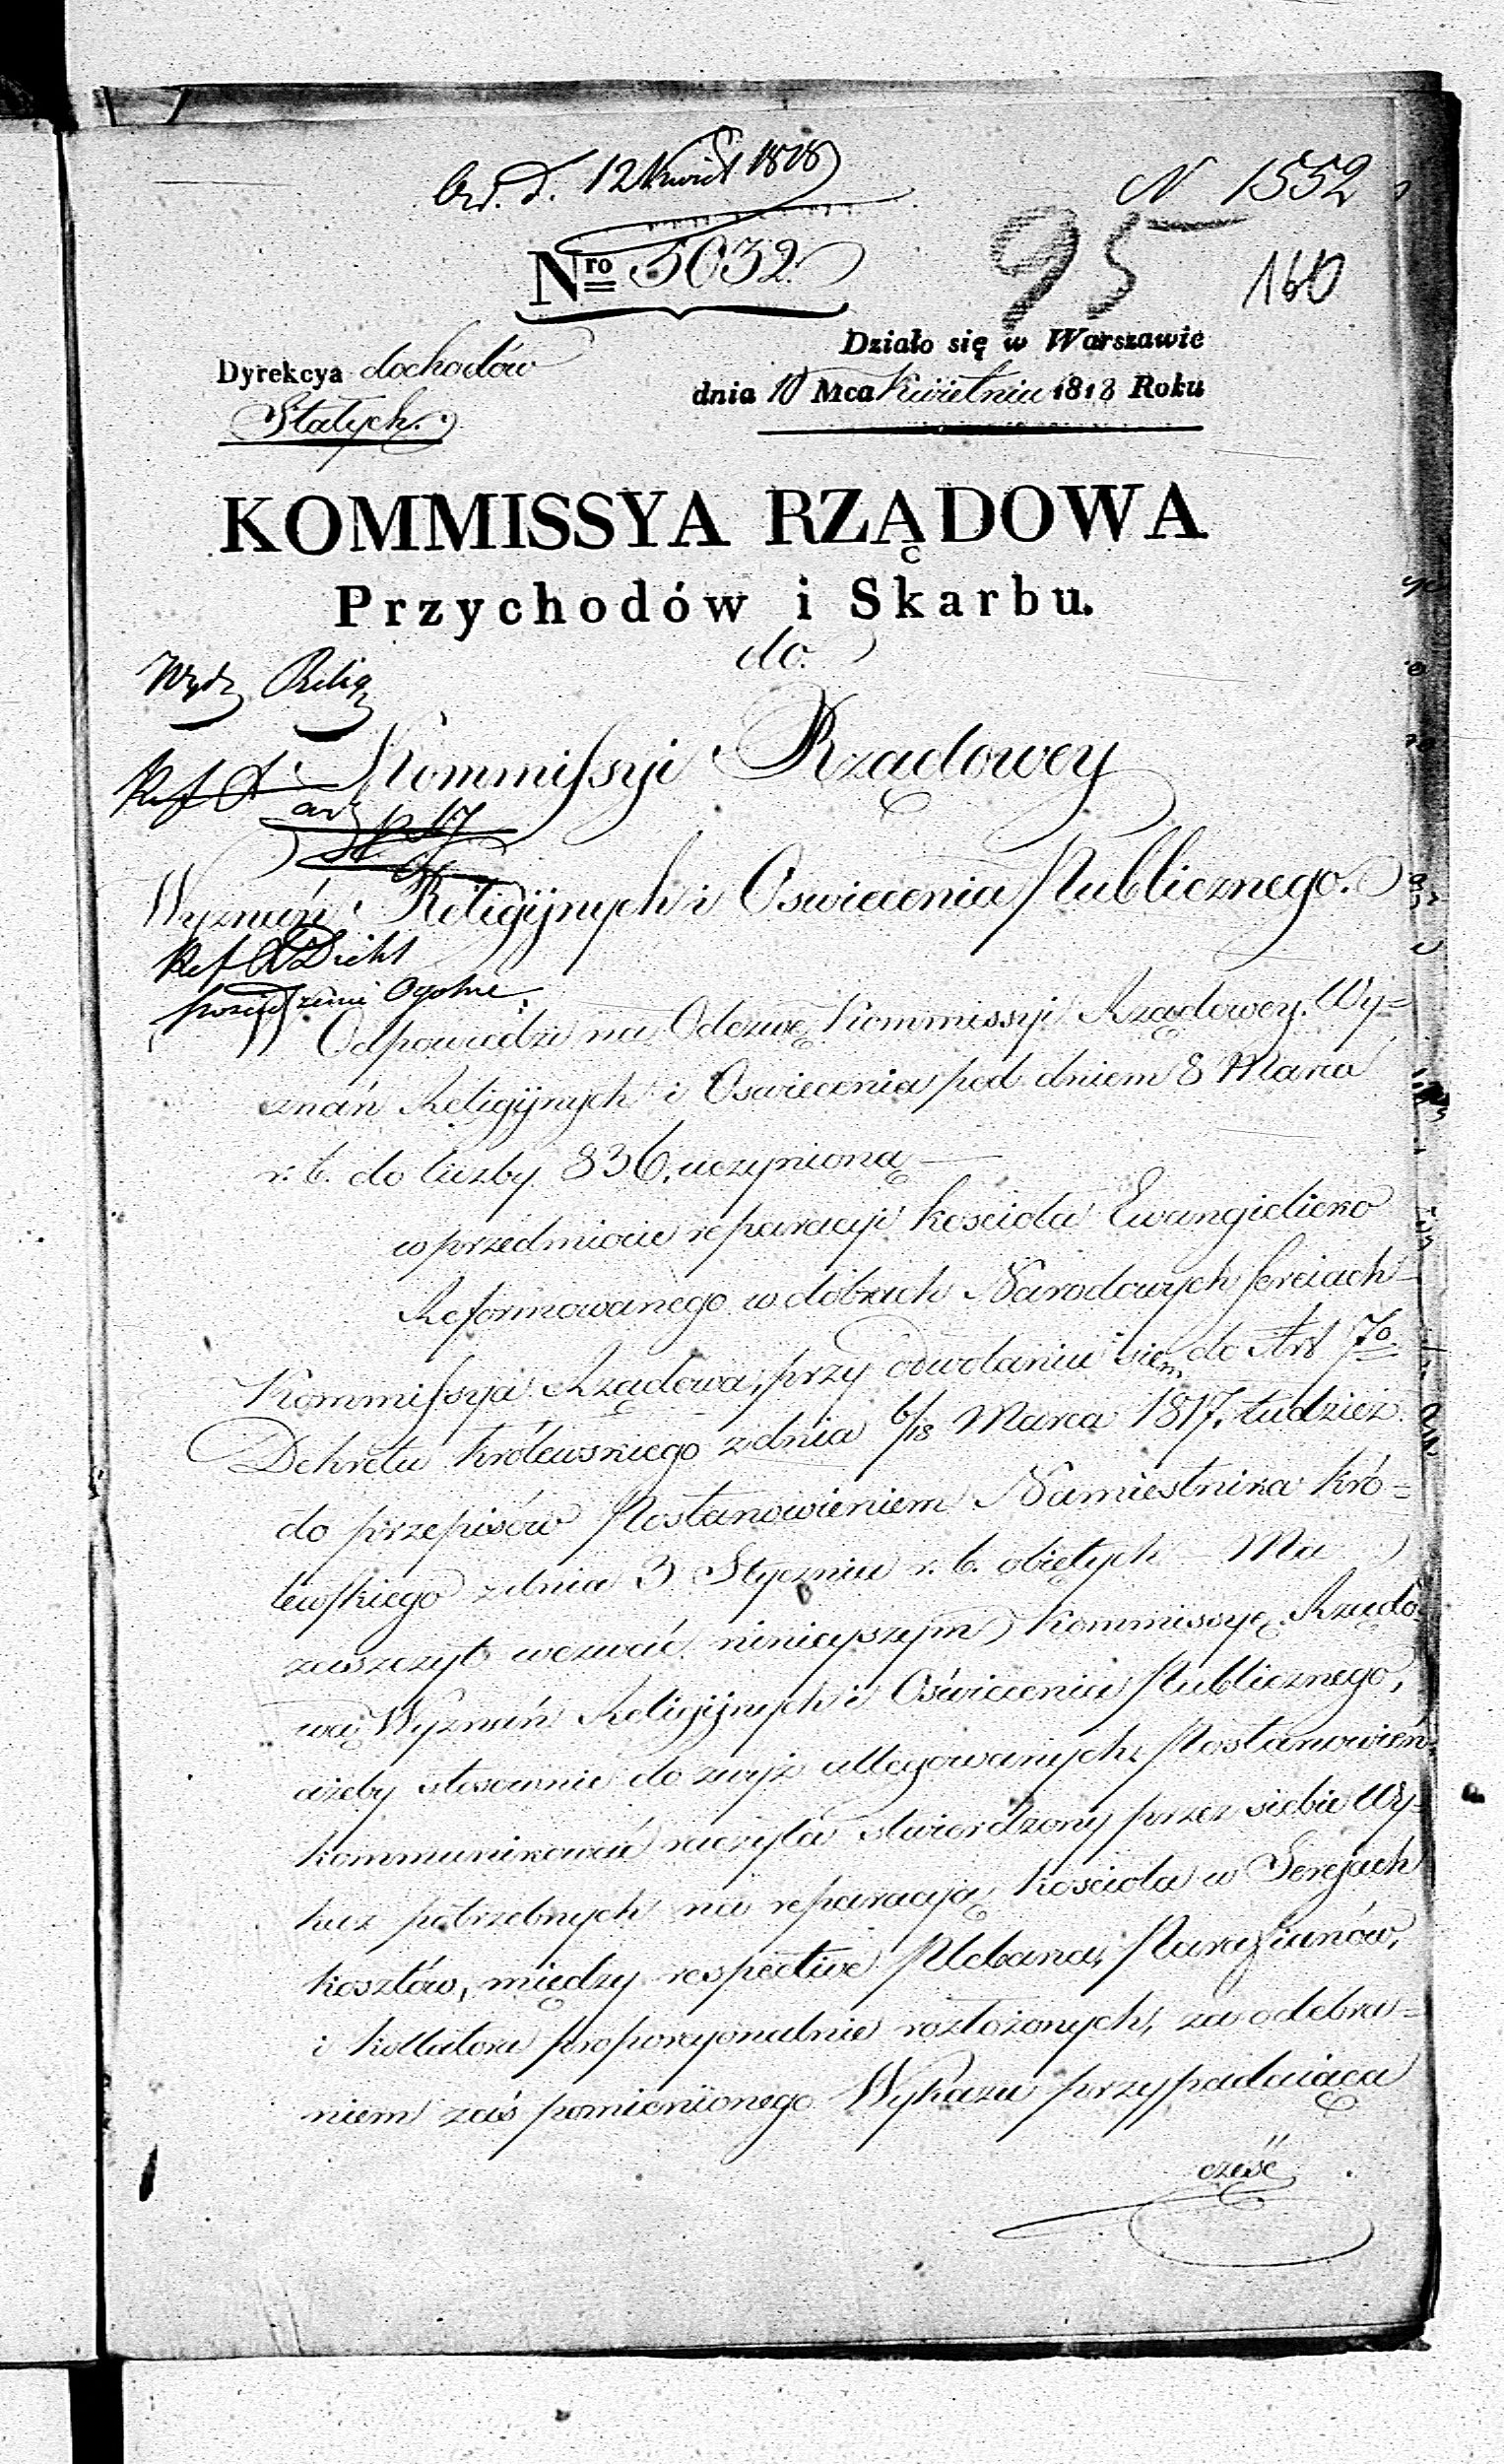 d. 12 Kwiet 1818
N 1552
Nro 5032.
95
160
Działo się w Warszawie
Dyrekcya dochodów
dnia 10 Mca Kwietnia 1818 Roku
Stałych.
KOMMISSYA RZĄDOWA
Przychodów i Skarbu.
do.
Wydz Relig
Kommissyi Rządowey
Wyznań Religijnych i Oswiecenia Publicznego.
Odpowiedzi na Odezwę Kommissyi Rządowey Wy=
znań Religijnych i Oswiecenia pod dniem 8 Marca
r: b. do liczby 836, uczynioną
w przedmiocie reparacyi kosciola Ewangielicko
Reformowanego w dobrach Narodowych Sereiach
Kommissya Rządowa, przy odwołaniu się do Art 7o
Dekretu Królewskiego z dnia 6/18 Marca 1817, tudzież
do przepisów Postanowieniem Namiestnika Kró=
lewskiego z dnia 3 Stycznia r. b. obiętych Ma
zaszczyt wezwać ninieyszym Kommissyę Rządo=
wą Wyznań Religijnych i Oświecenia Publicznego,
ażeby stosownie do zwyż allegowanych Postanowień
kommunikować raczyła stwierdzony przez siebie Wy=
kaz potrzebnych na reparacyą kościola w Serejach
kosztów, między respective Plebana, Parafianów,
i kollatora proporcyonalnie rozłożonych, za odebra=
niem zaś pomienionego Wykazu przypadaiąca
cześć